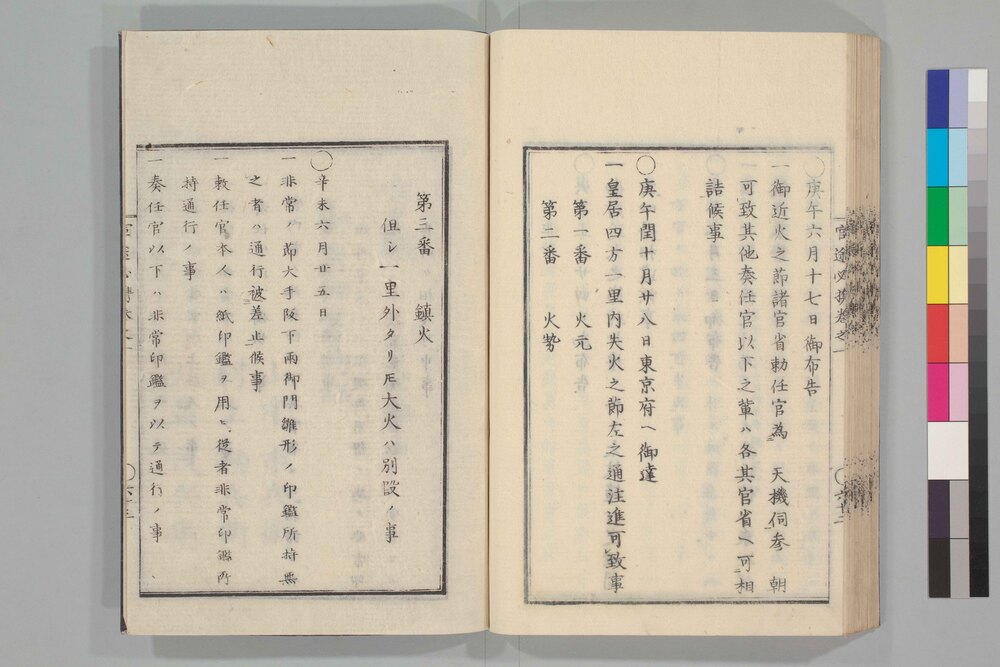 〇庚午六月十七日御布告
一御近火之節諸官省勅任官為　天機伺参　朝
可致其他奏任官以下之輩ハ各其官省ヘ可相
詰候事
〇庚午閏十月廿八日東京府ヘ御達
一皇居四方一里内失火之節左之通注進可致事
第一番　火元
第二番　火勢
第三番　鎮火
但シ一里外タリ𪜈大火ハ別段ノ事
〇辛未六月廿五日
一非常ノ節大手阪下両御門雛形ノ印鑑所持無
之者ハ通行被差止候事
一敕任官本人ハ紙印鑑ヲ用ヒ従者非常印鑑所
持通行ノ事
一奏任官以下ハ非常印鑑ヲ以テ通行ノ事